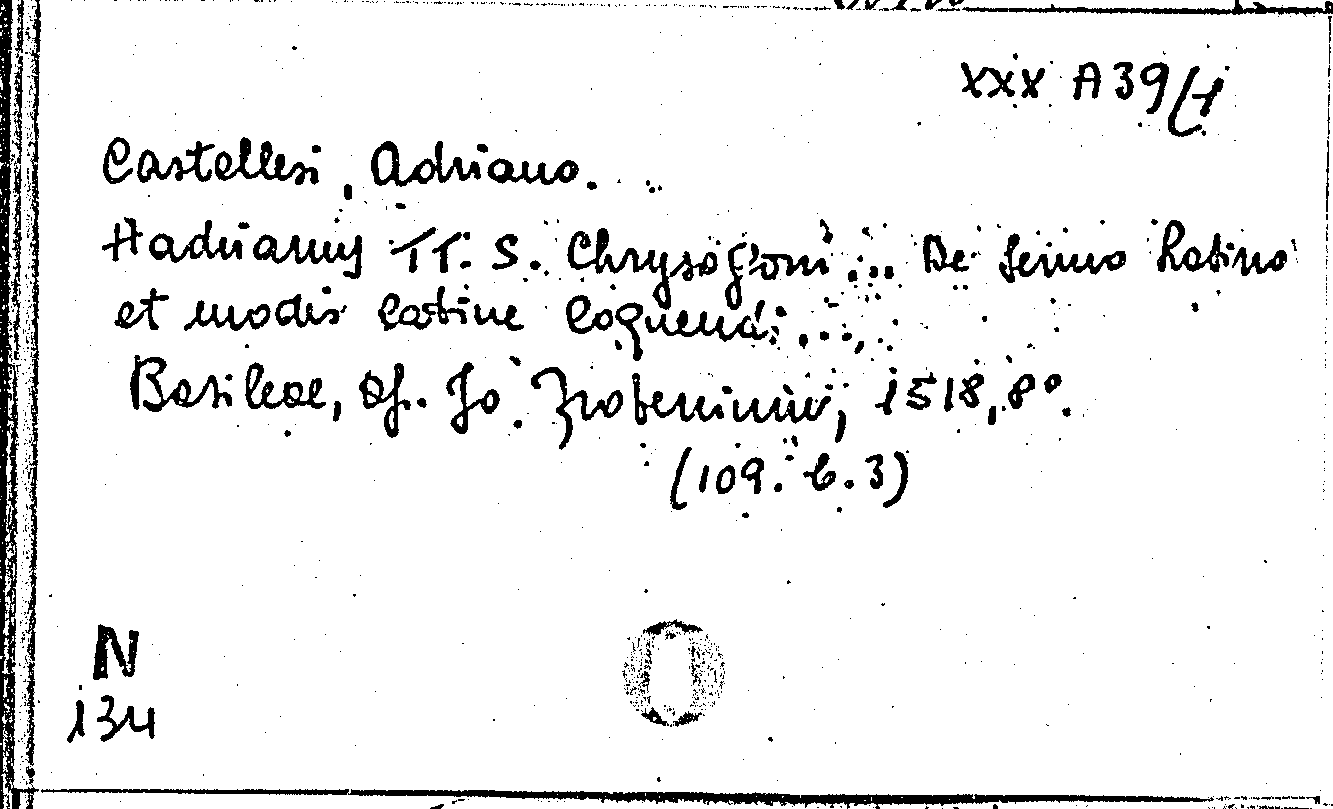 XXX A 39/1
Castellesi, Adriano.
Hadrianus TT. S. Chrysogoni... De Sermo Latino
et modis latine loquendi...
Basileae, ap. Jo. Frobenium, 1518, 8º.
(109. b. 3)
N
134